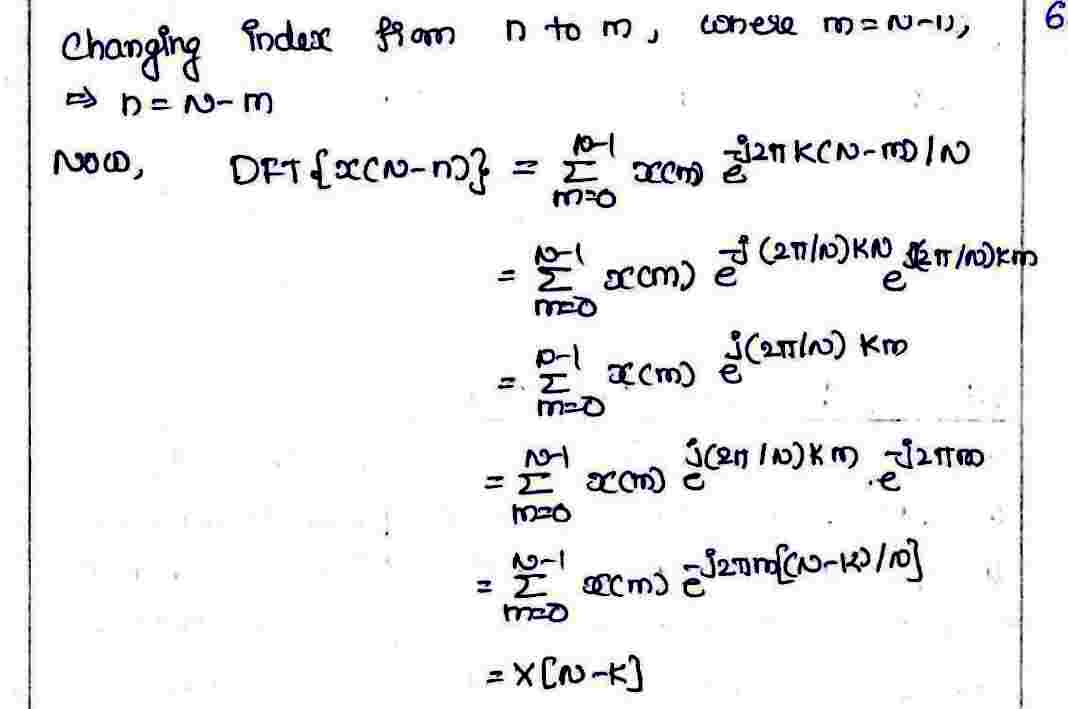 Changing index from n to m, where m = N-n, 6
⇒ n = N-m
Now, DFT{x(N-n)} = Σ_{m=0}^{N-1} x(m) e^{-j2πK(N-m)/N}
= Σ_{m=0}^{N-1} x(m) e^{-j(2π/N)KN} e^{j(2π/N)Km}
= Σ_{m=0}^{N-1} x(m) e^{j(2π/N)Km}
= Σ_{m=0}^{N-1} x(m) e^{j(2π/N)Km} . e^{-j2πm}
= Σ_{m=0}^{N-1} x(m) e^{-j2πm[(N-K)/N]}
= X[N-K]